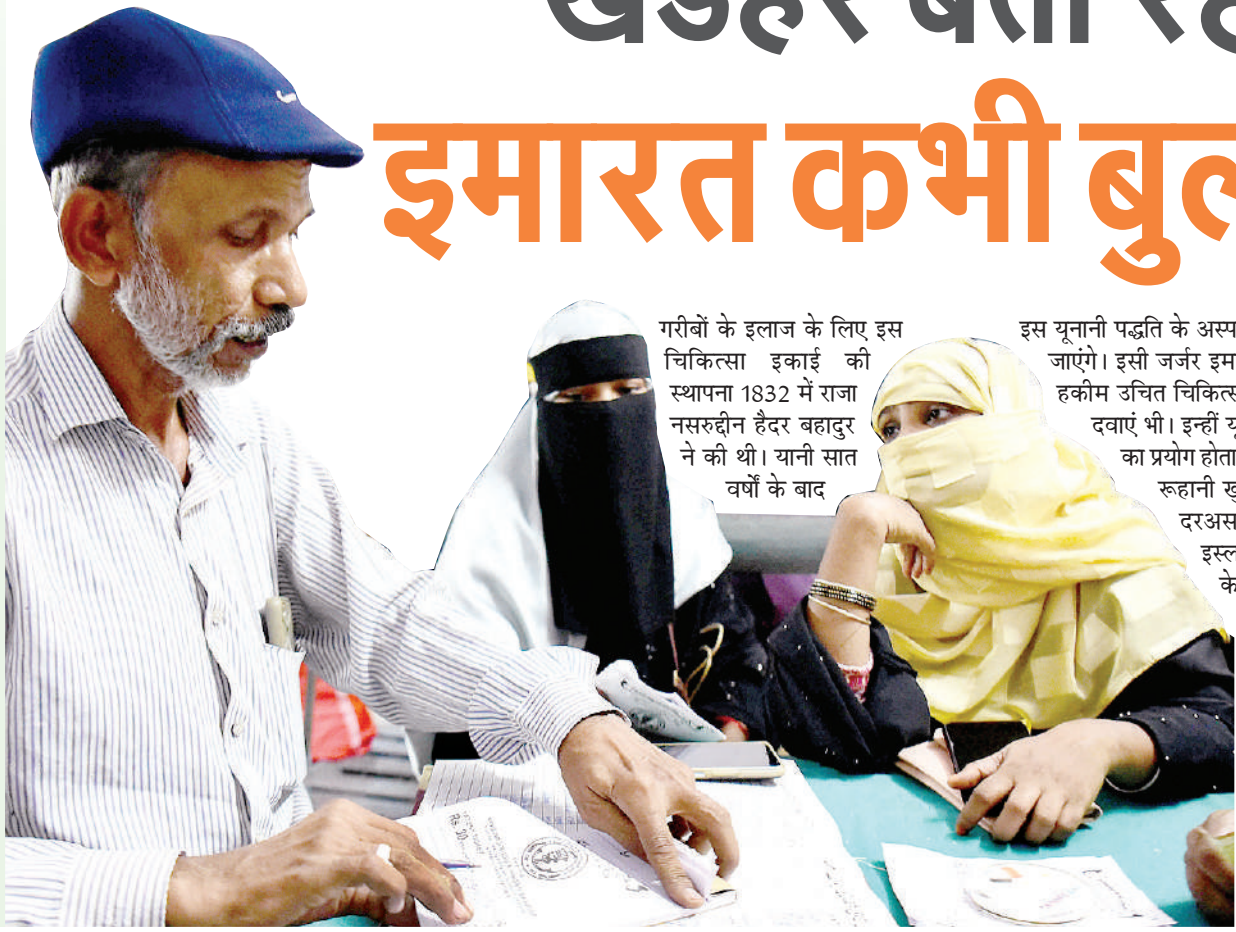 इमारत कभी
गरीबों के इलाज के लिए इस
चिकित्सा इकाई की
स्थापना 1832 में राजा
नसरुद्दीन हैदर बहादुर
ने की थी। यानी सात
वर्षों के बाद
इस यूनानी पद्धति के
जाएंगे। इसी जर्जर
हकीम उचित
दवाएं भी। इन्हीं
का प्रयोग होता
रूहानी
के
Rs. 30